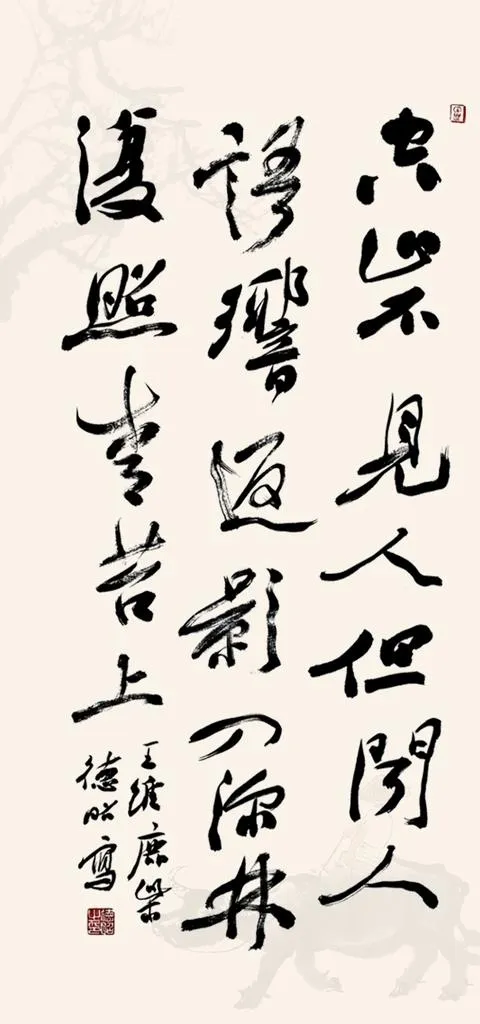 空山不見人但聞人
語響返影入深林
復照青苔上
王維鹿柴
德昭寫